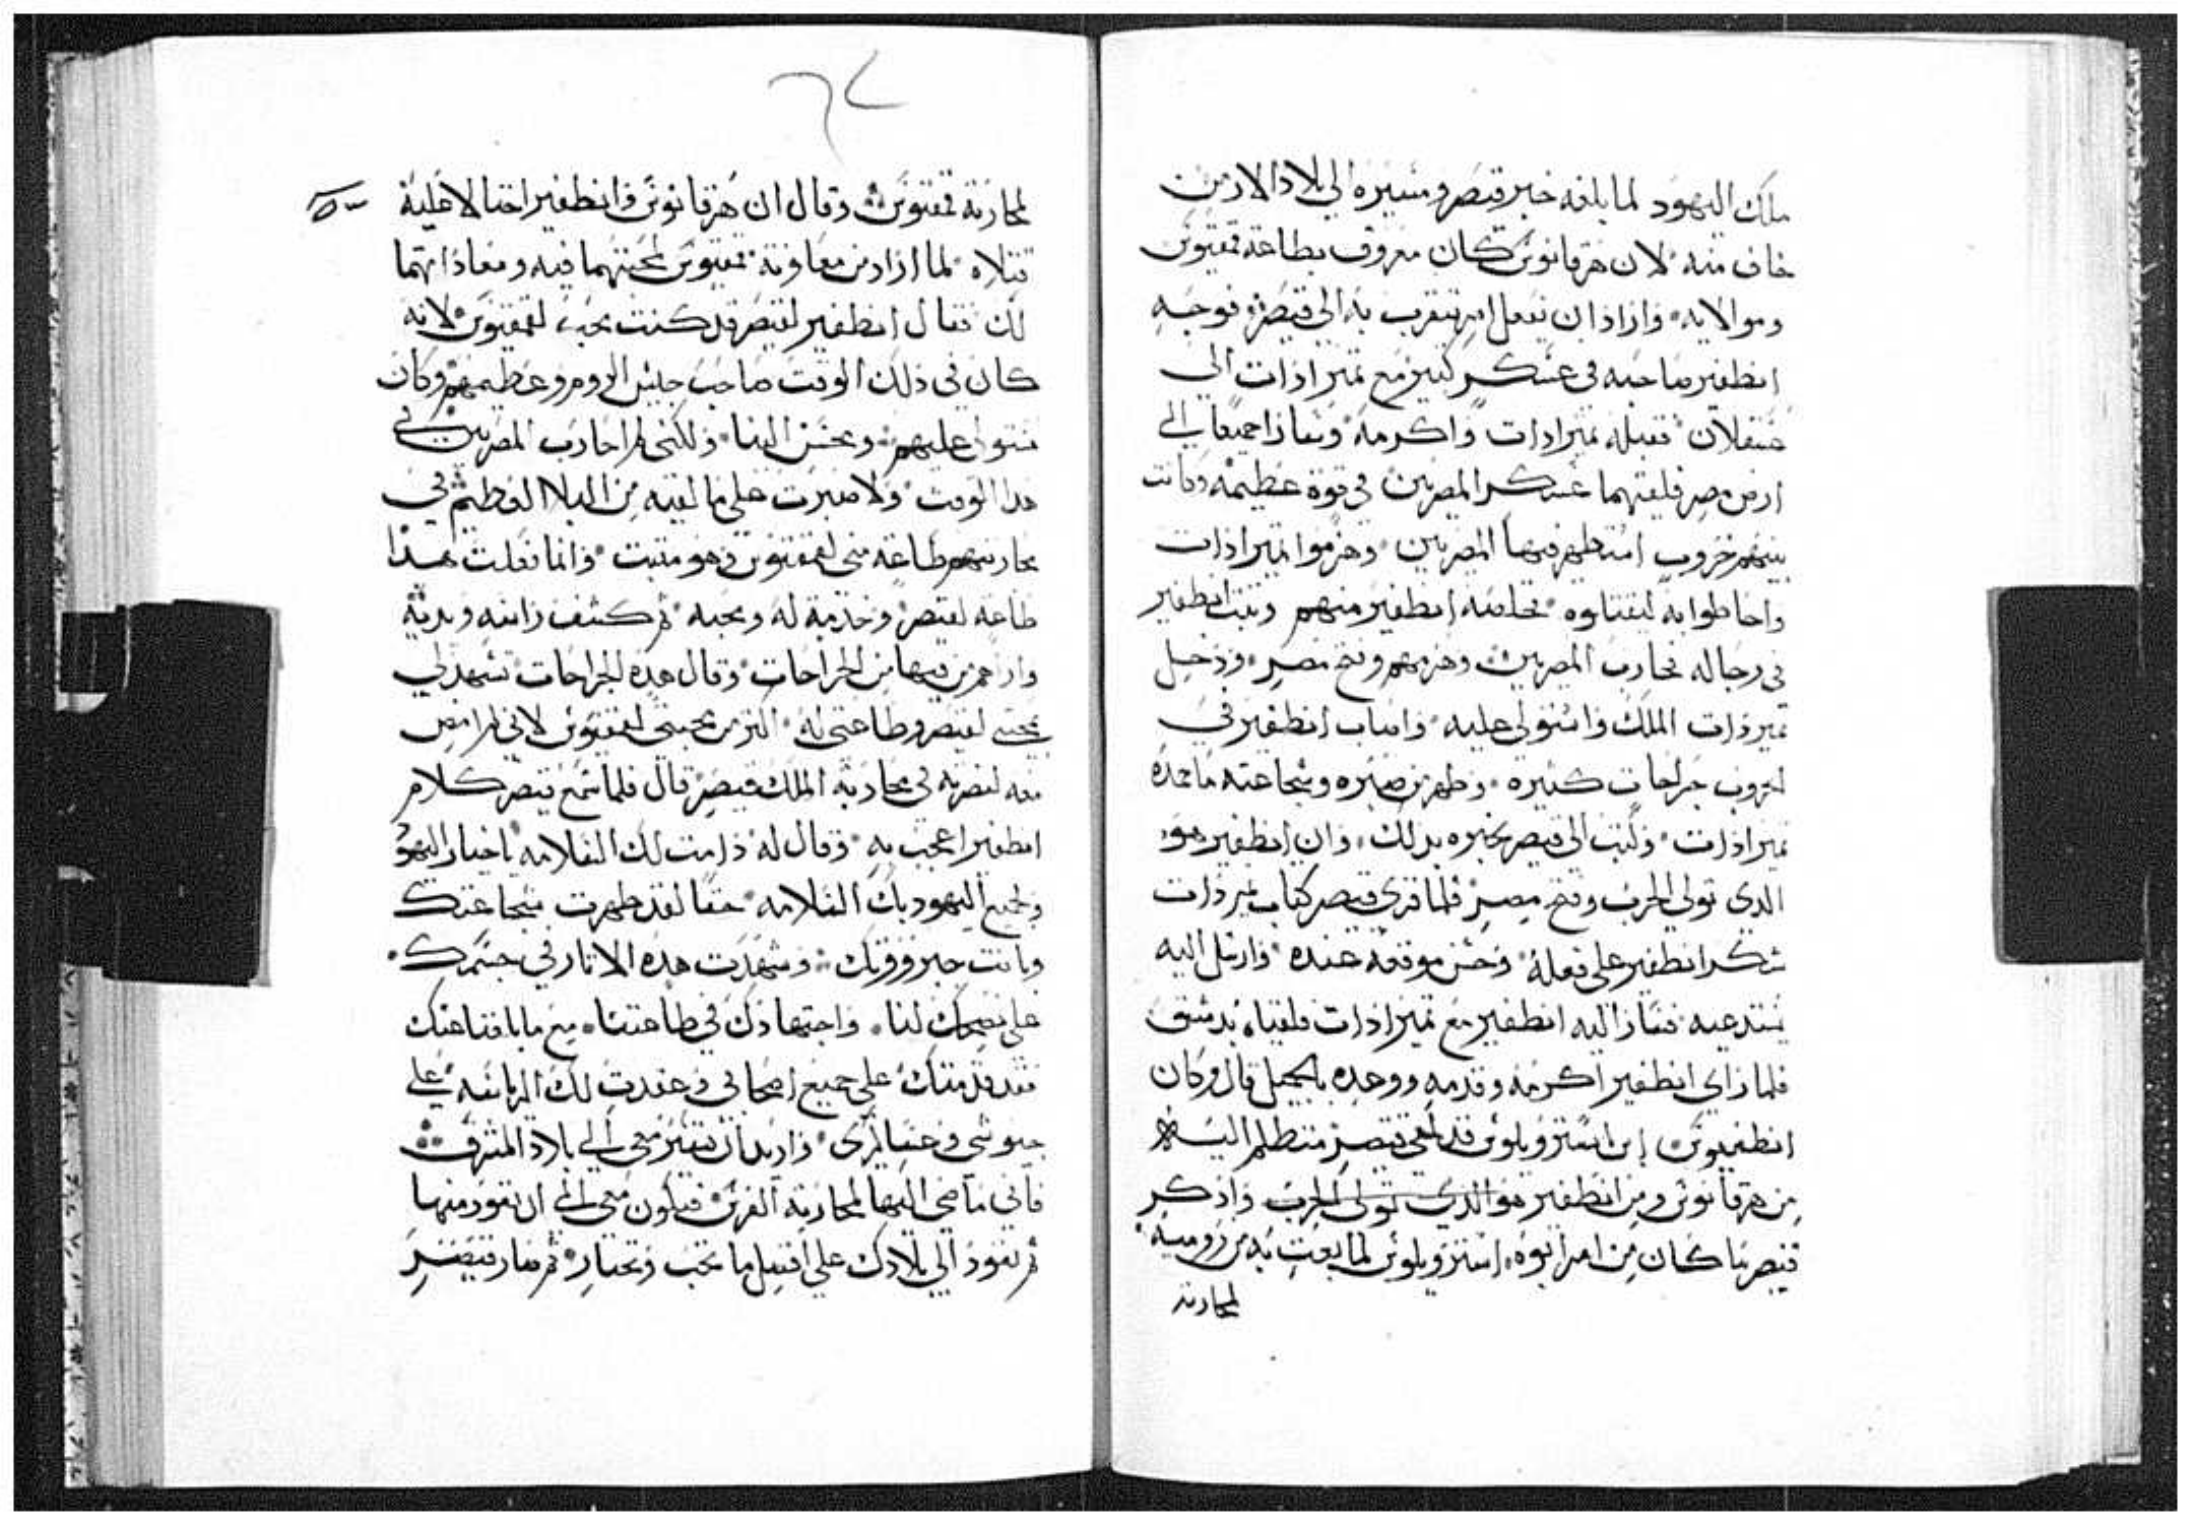 ملك اليهود لما بلغه خبر قيصر ومسيره الى بلاد الارمن
خاف منه لان هرقانوس كان معروف بطاعة تمقيوس
وموالاته وازاد ان يفعل امر يتقرب به الى قيصر فوجه
انطفير صاحبه في عسكر كبير مع تميرادات الى
عسقلان فقبله تميرادات واكرمه وسارا جميعا الى
ارض مصر فلقيهما عسكر المصريين في قوة عظيمه وكانت
بينهم حروب استظهر فيها المصريين وهزموا تميرادات
واحاطوا به ليقتلوه فخلصه انطفير منهم وثبت انطفير
في رجاله فحارب المصريين وهزمهم وفتح مصر ودخل
تميردات الملك واستولى عليه واصاب انطفير في
الحروب جراحات كثيرة وظهر من صبره وشجاعته ما حمده
تميرادات وكتب الى قيصر يخبره بذلك وان انطفير هو
الدى تولى الحرب وفتح مصر فلما قرى قيصر كتاب تميردات
شكر انطفير على فعله وحسن موقعه عنده وارسل اليه
يستدعيه فسار اليه انطفير مع تميرادات فلقياه بدمشق
فلما راى انطفير اكرمه وقدمه ووعده بالجميل قال وكان
انطغنوس ابن استروبلوس قد لقى قيصر متظلم اليه
من هرقانوس ومن انطفير هو الدى تولى الحرب واذكر
قيصر ما كان من امر ابوه استروبلوس لما بعت به من رومية
لمحاربة
٦٤
لمحاربة تمقيوس وقال ان هرقانوس وانطفير احتالا عليه
قتلاه لما اراد من معاونة تمقيوس لمحبتهما فيه ومعاداتهما
لك فقال انطفير لقيصر قد كنت محب لتمقيوس لانه
كان في ذلك الوقت صاحب جيش الروم وعظيمهم وكان
متولى عليهم ومحسن الينا ولكنى لم احارب المصريين في
هدا الوقت ولا صبرت على ما لقيته من البلا العظيم في
محاربتهم طاعة منى لتمقيوس وهو ميت وانما فعلت هدا
طاعة لقيصر وخدمة له ومحبه ثم كشف راسه وبدنه
وارا من فيها من الجراحات وقال هده الجراحات تشهد لى
بمحبتى لقيصر وطاعتى له اكتر من محبتى لتمقيوس لانى لم امض
معه لنصرته في محاربة الملك قيصر قال فلما سمع قيصر كلام
انطفير اعجب به وقال له دامت لك السلامه يا خيار اليهود
ولجميع اليهود بك السلامه حقا لقد ظهرت شجاعتك
وبانت خبر وقوتك وشهدت هده الاتار في جسمك
على نصحك لنا واجتهادك في طاعتنا مع ما بلغنا عنك
فقد قدمتك على جميع اصحابى وعقدت لك الرياسه على
جيوشى وعساكرى واريد ان تسير معى الى بلاد المشرق
فانى ماضى اليها لمحاربة الفرس فتكون معى الى ان نعود منها
ثم تعود الى بلادك على افضل ما تحب وتختار ثم سار قيصر